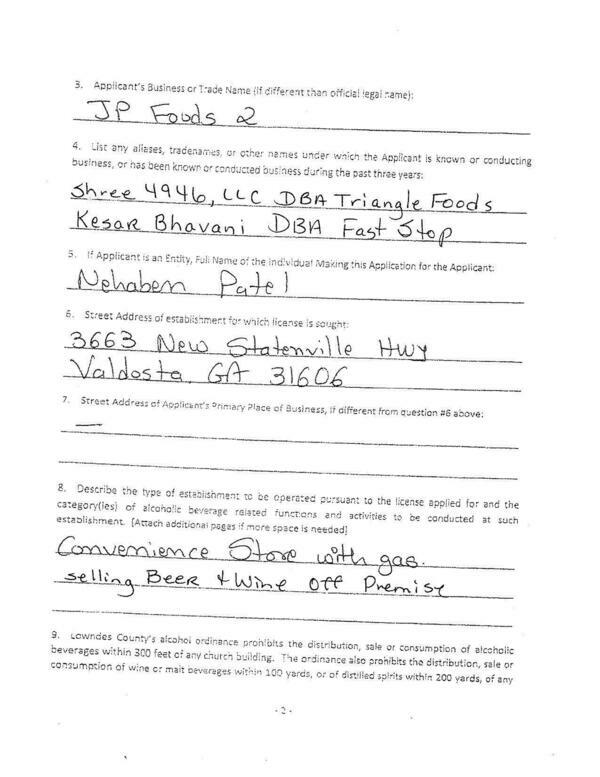 3. Applicant's Business or Trade Name (if different than official legal name):
JP Foods 2
4. List any aliases, tradenames, or other names under which the Applicant is known or conducting
business, or has been known or conducted business during the past three years:
Shree 4946, LLC DBA Triangle Foods
Kesar Bhavani DBA Fast Stop
5. If Applicant is an Entity, Full Name of the Individual Making this Application for the Applicant:
Nehaben Patel
6. Street Address of establishment for which license is sought:
3663 New Statenville Hwy
Valdosta GA 31606
7. Street Address of Applicant's Primary Place of Business, if different from question #6 above:
—
8. Describe the type of establishment to be operated pursuant to the license applied for and the
category(ies) of alcoholic beverage related functions and activities to be conducted at such
establishment. [Attach additional pages if more space is needed]
Convenience Store with gas.
selling Beer + Wine Off Premise
9. Lowndes County's alcohol ordinance prohibits the distribution, sale or consumption of alcoholic
beverages within 300 feet of any church building. The ordinance also prohibits the distribution, sale or
consumption of wine or malt beverages within 100 yards, or of distilled spirits within 200 yards, of any
- 2 -